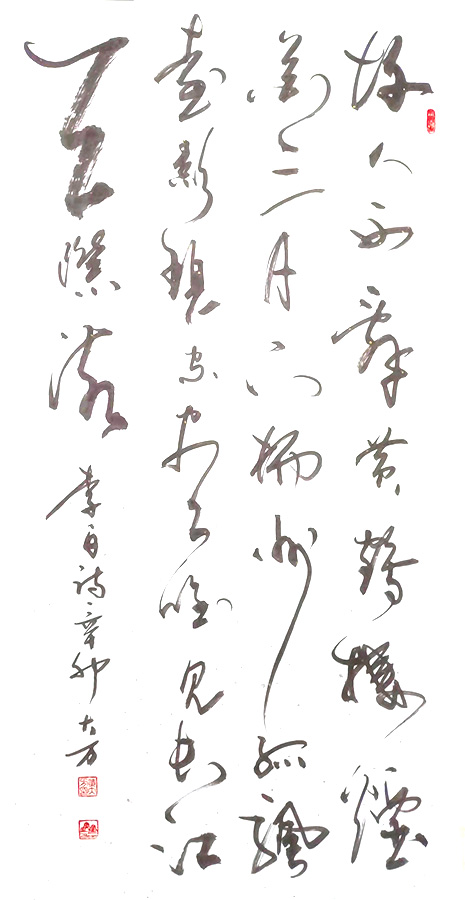 故人西辭黃鶴樓煙
花三月下揚州孤颿
遠影碧空盡唯見長江
天際流
李白詩辛卯大万